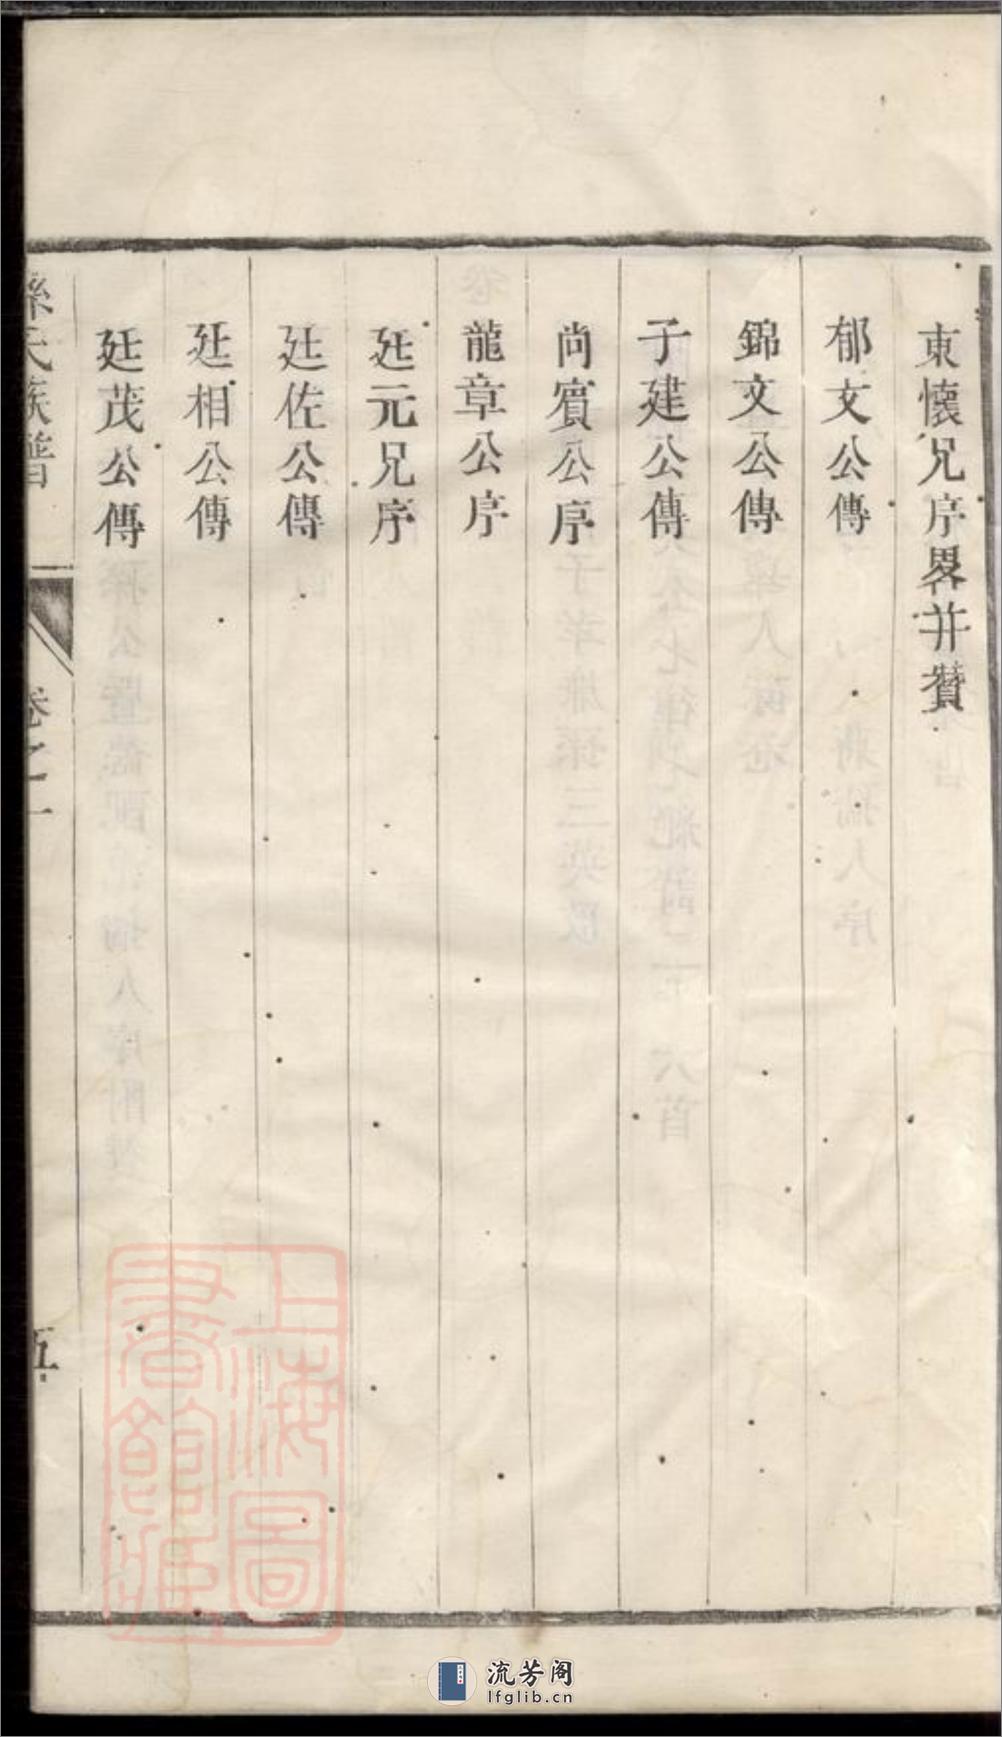 東懷兄序畧并贊
郁文公傳
錦文公傳
子建公傳
尚賓公序
龍章公序
廷元兄序
廷佐公傳
廷相公傳
廷茂公傳
孫氏族譜 卷之一 五
上海圖書館藏
流芳阁
lfglib.cn